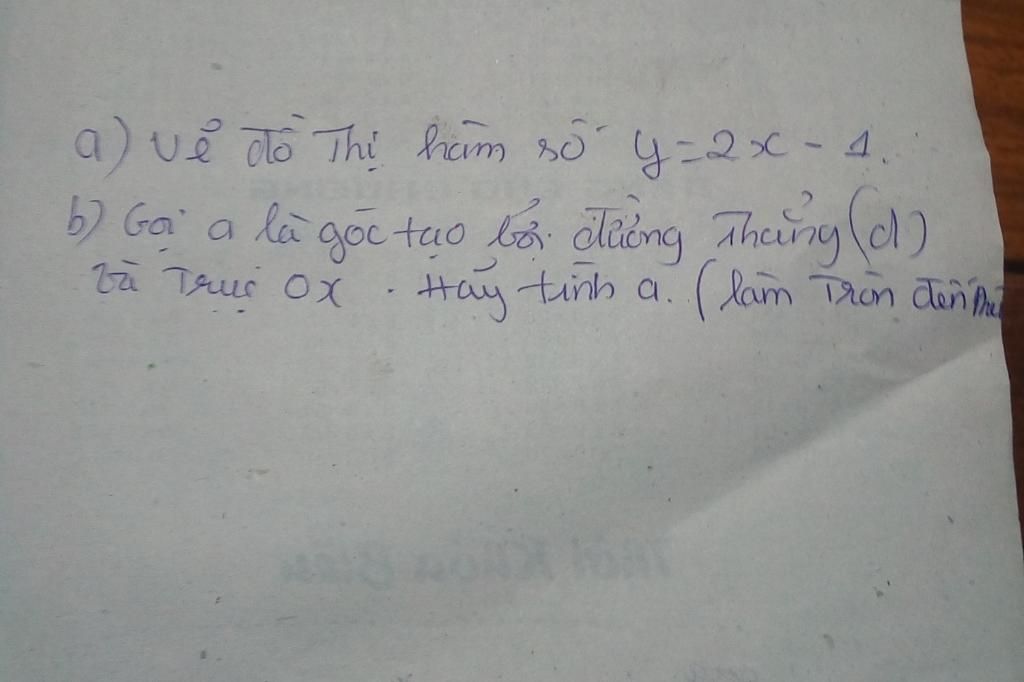 a) Vẽ đồ Thị hàm số y = 2x - 1.
b) Gọi a là góc tạo bởi đường Thẳng (d)
và Trục Ox. Hãy tính a. (làm Tròn đến